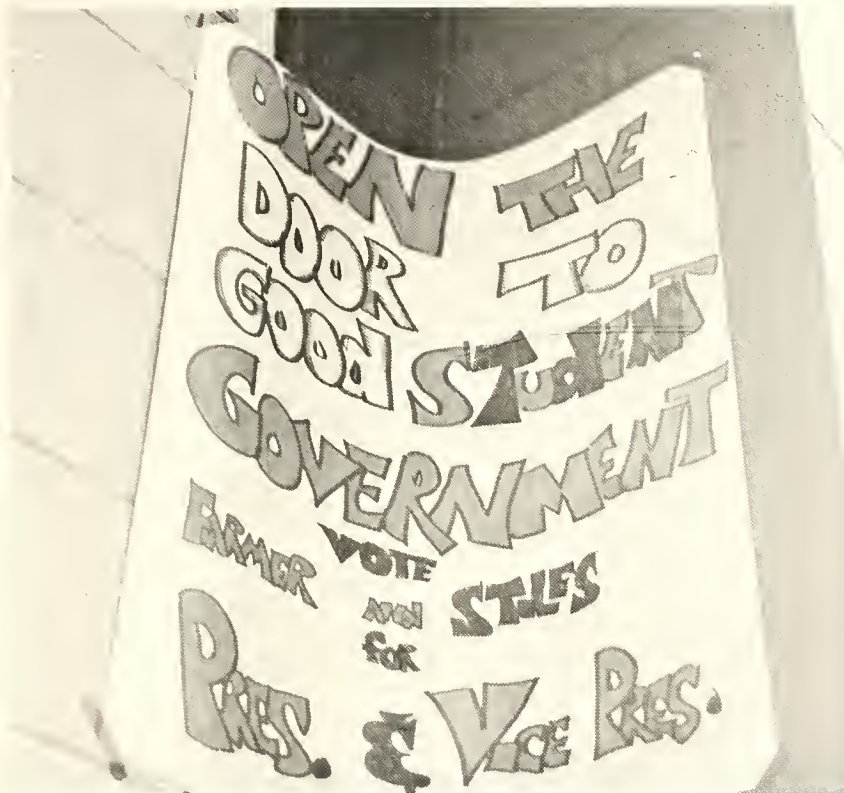 OPEN THE
DOOR TO
GOOd STUdENT
GOVERNMENT
VOTE
FARMER AND STILES
for
PRES. & VICE PRES.